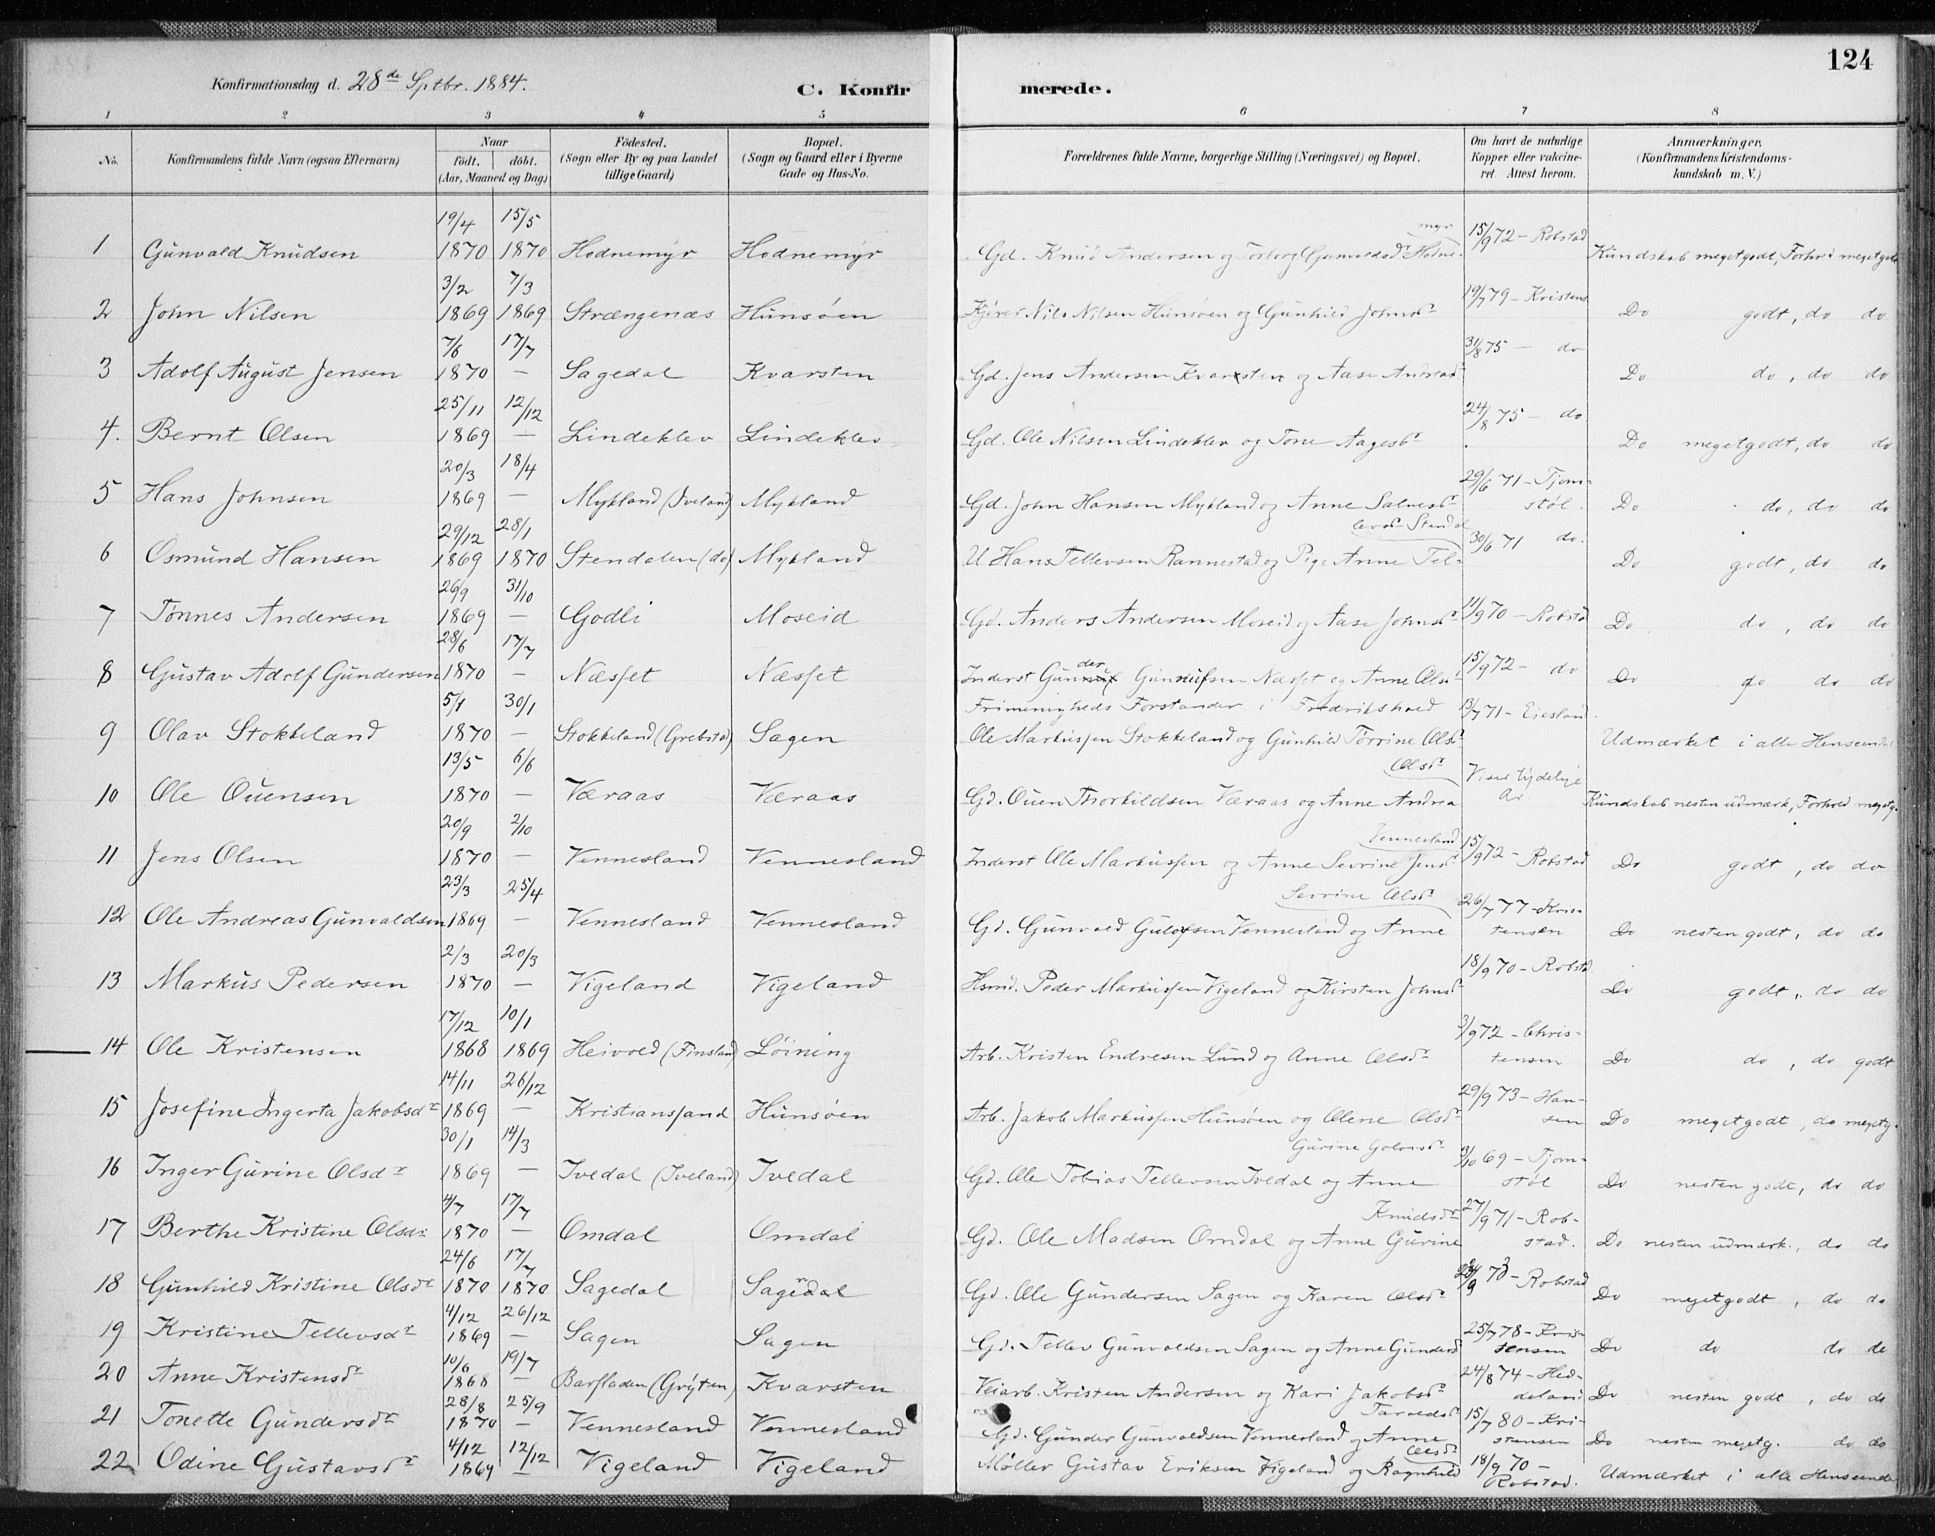 124
Konfirmationsdag d. 28de Sptbr. 1884.
C. Konfir merede.
1 2 3 4 5 6 7 8
No. Konfirmandens fulde Navn (ogsaa Efternavn) Naar født. døbt. (Aar, Maaned og Dag) Fødested. (Sogn eller By og paa Landet tillige Gaard) Bopæl. (Sogn og Gaard eller i Byerne Gade og Hus-No. Forældrenes fulde Navne, borgerlige Stilling (Næringsvei) og Bopæl. Om havt de naturlige Kopper eller vakcineret. Attest herom. Anmærkninger. (Konfirmandens Kristendomskundskab m. V.)
1 Gunvald Knudsen 19/4 1870 15/5 1870 Hodnemyr Hodnemyr Gd. Knud Andersen og Torborg Gunvaldsdr Hodnemyr 15/9 72 - Robstad Kundskab megetgodt, Forhold megetgodt
2 John Nilsen 3/2 1869 7/3 1869 Strængenæs Hunsøen Kjører Nils Nilsen Hunsøen og Gunhild Johnsdr 19/7 79 - Kristens Do godt, do do
3 Adolf August Jensen 7/6 1870 17/7 — Sagedal Kvarsten Gd. Jens Andersen Kvarsten og Aase Andreasdr 31/8 75 — do Do do, do do
4. Bernt Olsen 25/11 1869 12/12 — Lindeklev Lindeklev Gd. Ole Nilsen Lindeklev og Tone Aagesdr 24/8 75 — do Do megetgodt, do do
5 Hans Johnsen 20/3 1869 18/4 — Mykland (Iveland) Mykland Gd. John Hansen Mykland og Anne Salvesdr 29/6 71 - Tjomstøl. Do do, do do
6 Osmund Hansen 29/12 1869 28/1 1870 Stendalen (do) Mykland U Hans Tellevsen Rannestad og Pige Anne Tellevsdr Stendal 30/6 71 do. Do godt, do do
7 Tønnes Andersen 26/9 1869 31/10 — Godli Moseid Gd. Anders Andersen Moseid og Aase Johnsdr 11/9 70 - Robstad Do do, do do
8 Gustav Adolf Gundersen 28/6 1870 17/7 — Næsset Næsset Inderst Gunder Gunnufsen Næsset og Anne Olsdr 15/9 72 - do Do do do do
9 Olav Stokkeland 5/1 1870 30/1 — Stokkeland (Grebstad) Sagen Frimenigheds Forstander i Fredrikshald Ole Markussen Stokkeland og Gunhild Torrine Olsdr 13/7 71 - Eiesland. Udmærket i alle Henseender
10 Ole Ouensen 13/5 1870 6/6 — Væraas Væraas Gd. Ouen Thorkildsen Væraas og Anne Andrea Olsdr Viser tydelige Ar. Kundskab nesten udmærk, Forhold megetg.
11 Jens Olsen 20/9 1870 2/10 — Vennesland Vennesland Inderst Ole Markussen og Anne Sevrine Jensdr Vennesland 15/9 72 - Robstad Do godt, do do
12 Ole Andreas Gunvaldsen 23/3 1869 25/4 — Vennesland Vennesland Gd. Gunvald Gulofsen Vennesland og Anne Sevrine Olsdr 26/7 77 - Kristensen Do nesten godt, do do
13 Markus Pedersen 2/3 1870 20/3 — Vigeland Vigeland Hsmd. Peder Markussen Vigeland og Kirsten Johnsdr 18/9 70 - Robstad Do godt, do do
14 Ole Kristensen 17/12 1868 10/1 1869 Heivold (Finsland) Løining Arb. Kristen Endresen Lund og Anne Olsdr 3/9 72 - Christensen Do do, do godt
15 Josefine Ingerta Jakobsdr 14/11 1869 26/12 — Kristianssand Hunsøen Arb. Jakob Markussen Hunsøen og Olene Olsdr 29/9 73 - Hansen Do megetgodt, do megetg.
16 Inger Gurine Olsdr 30/1 1869 14/3 — Ivedal (Iveland) Ivedal Gd. Ole Tobias Tellevsen Ivedal og Anne Gurine Golovsdr 3/10 69 - Tjomstøl Do nesten godt, do do
17 Berthe Kristine Olsdr 4/7 1870 17/7 — Omdal Omdal Gd. Ole Madsen Omdal og Anne Gurine Knudsdr 27/9 71 - Robstad. Do nesten udmærk., do do
18 Gunhild Kristine Olsdr 24/6 1870 17/7 1870 Sagedal Sagedal Gd. Ole Gundersen Sagen og Karen Olsdr 23/9 73 - Robstad Do megetgodt, do do
19 Kristine Tellevsdr 4/12 1869 26/12 — Sagen Sagen Gd. Tellev Gunvaldsen Sagen og Anne Gundersd 25/7 78 - Kristensen Do do do do
20 Anne Kristensdr 10/6 1868 19/7 — Barfladen (Grýten) Kvarsten Veiarb. Kristen Andersen og Kari Jakobsdr 24/8 74 - Heddeland Do nesten godt, do do
21 Tonette Gundersdr 28/8 1870 25/9 — Vennesland Vennesland Gd. Gunder Gunvaldsen Vennesland og Anne Taraldsdr 15/7 80 - Kristensen Do nesten megetg. do do
22 Odine Gustavsdr 4/12 1869 12/12 — Vigeland Vigeland Møller Gustav Eriksen Vigeland og Ragnhild Olsdr 18/9 70 - Robstad. Udmærket i alle Henseender